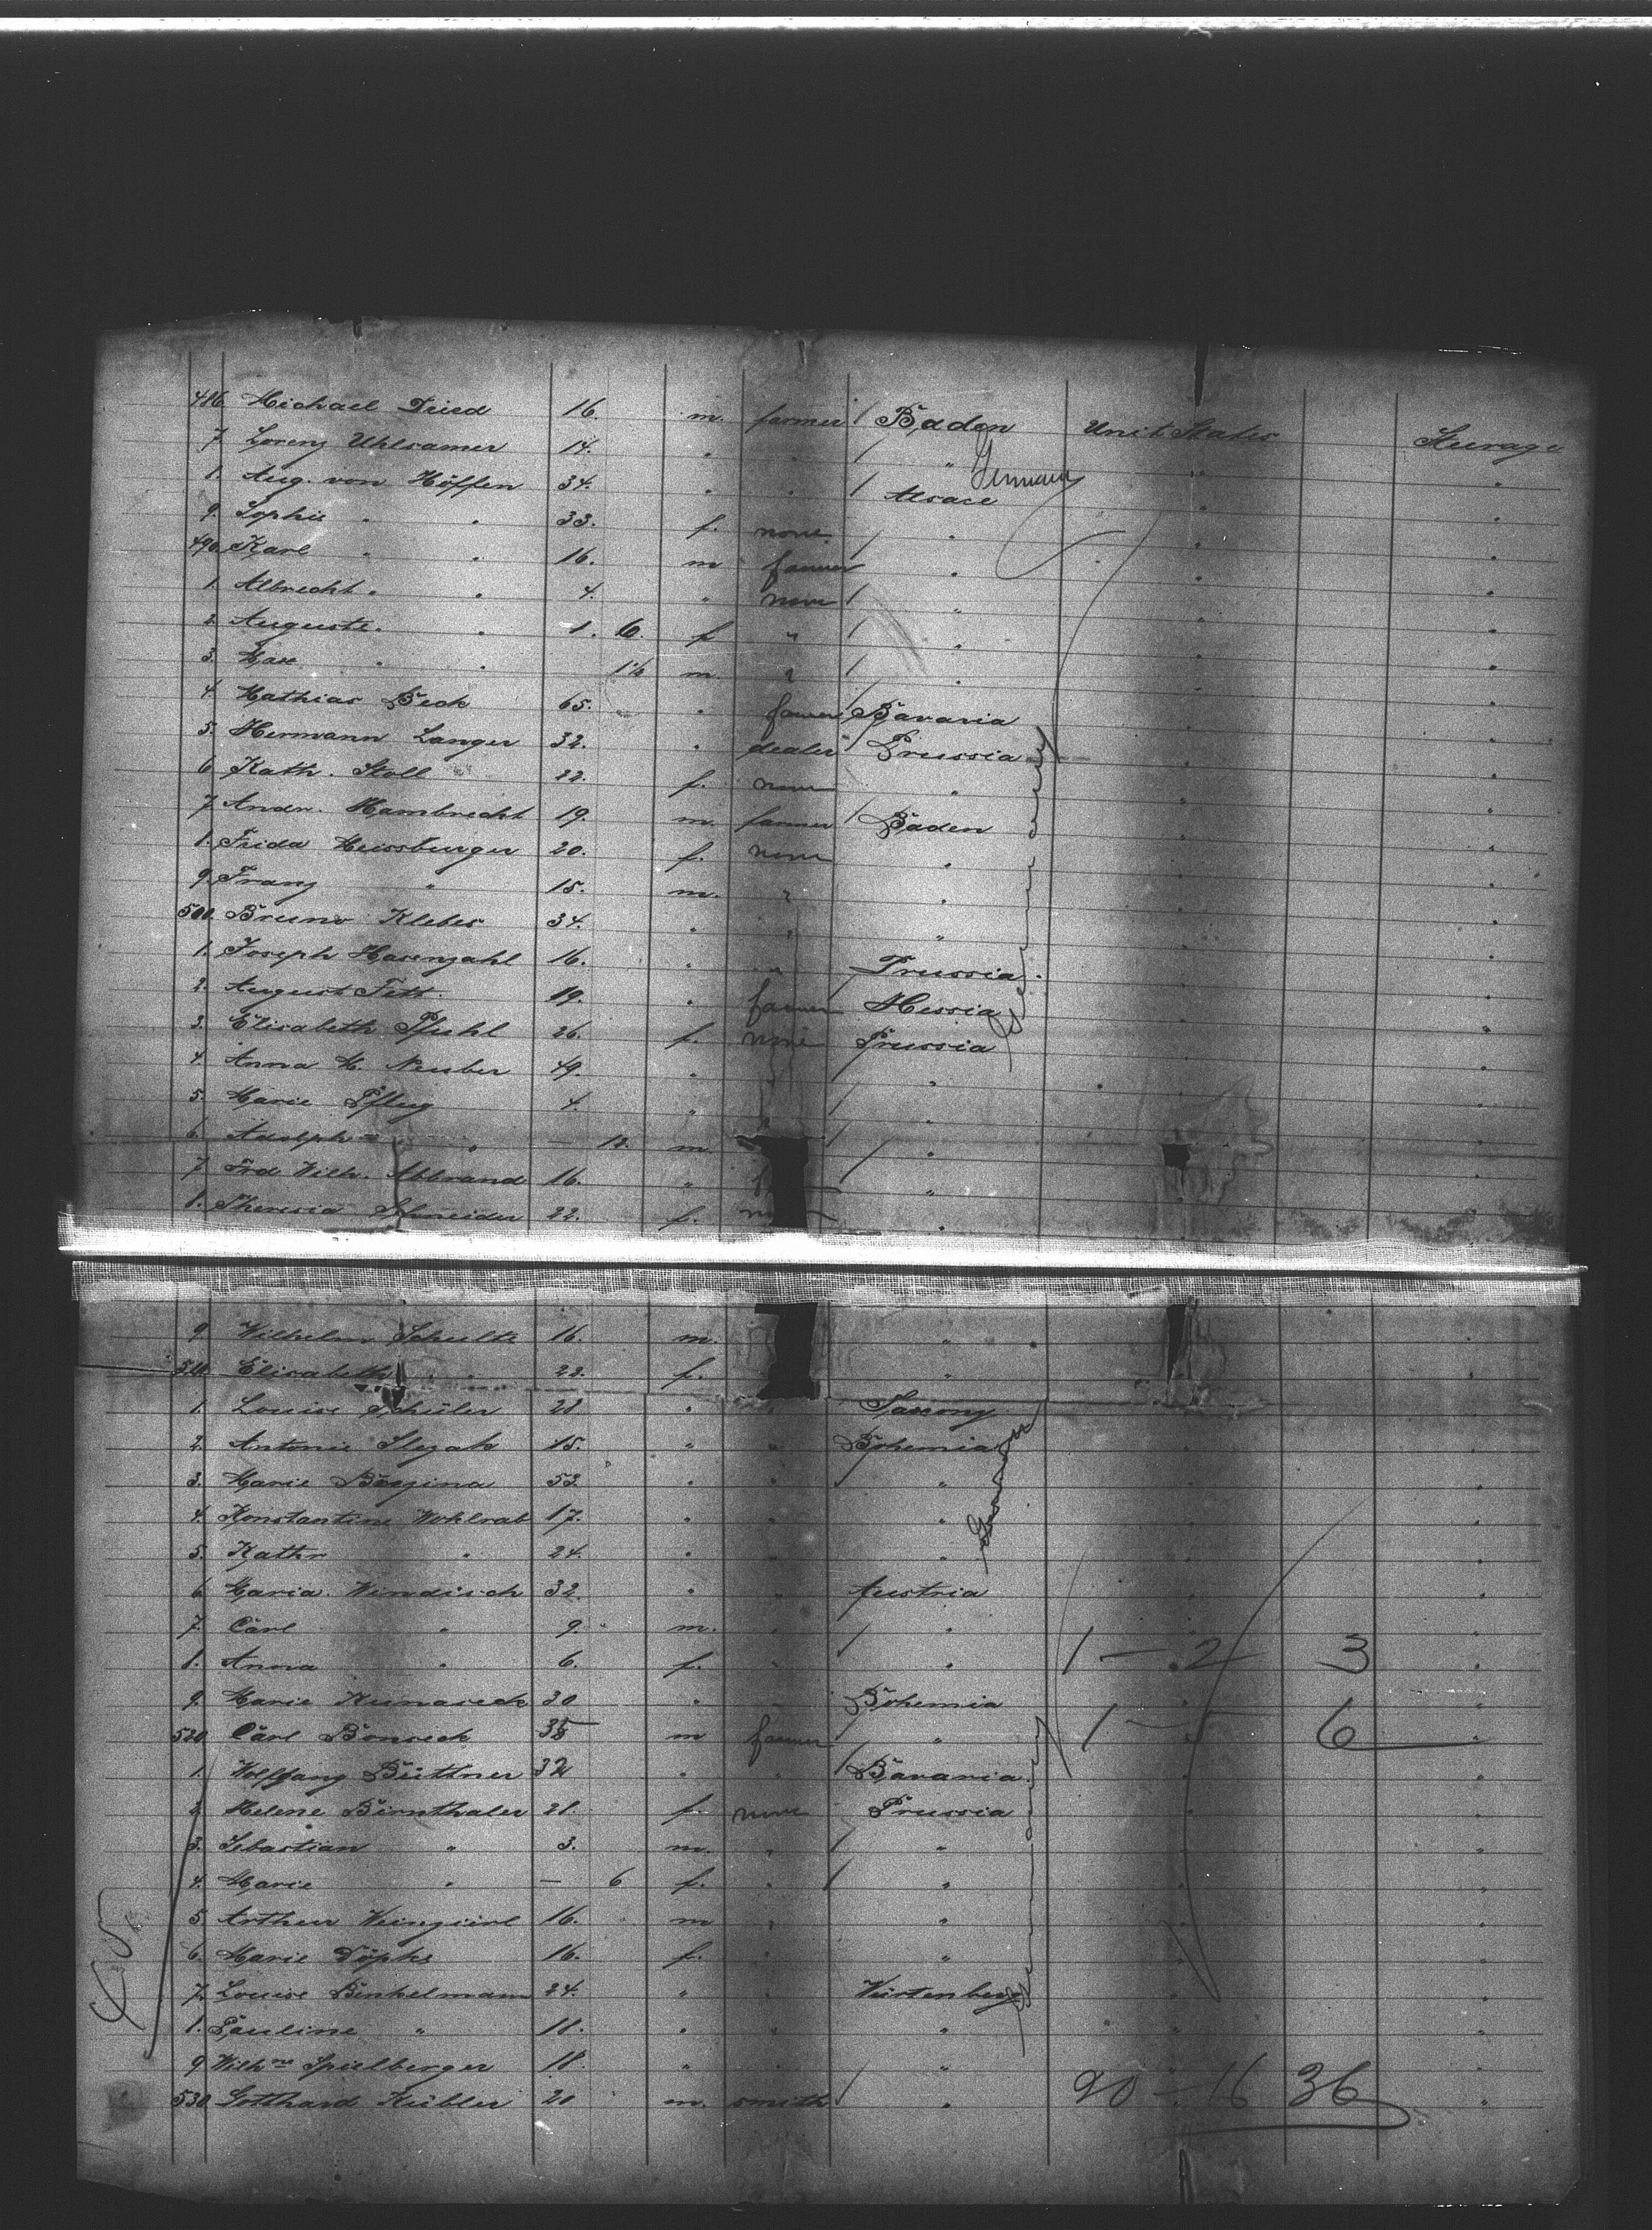 486 Michael Dried 16. m. farmer / Baden Unit States Steerage
7. Lorenz Uhlsamer 14. " " / " " "
Germany
8. Aug. von Höffen 34. " " / Alsace " "
9. Sophie " " 33. f. none / " " "
490. Karl " " 16. m farmer " " "
1. Albrecht " " 4. " none / " " "
2. Auguste " " 1. 6. f. " / " " "
3. Max " " m. " / " " "
4. Mathias Beck 65. " farmer / Bavaria " "
5. Hermann Langer 32. " dealer / Prussia " "
6. Kath. Stoll 22. f. none " " "
7. Andr. Hambrecht 19. m. farmer / Baden " "
8. Frida Heissburger 20. f. none " " "
9. Franz " 15. m. " " " "
500. Bruno Klebes 34. " " " " "
1. Joseph Hasenzahl 16. " " Prussia " "
2. August Fett. 19. " farmer Hessia " "
3. Elisabeth Pfuhl 26. f. none Prussia " "
Germany
4. Anna M. Neuber 49. " " " " "
5. Marie Pfleg 4. " / " " "
6. Adolph " — m. / " " "
7. Frd Wilh. Abbrand 16. " / " " "
8. Theresia Schneider 22. f. " "
9. Wilhelm Schulte 16. m. " "
510. Elisabeth " 22. f. " "
1. Louise Schüler 28. " " Saxony "
2. Antonie Slezak 15. " " Bohemia " "
3. Marie 53. " " " "
4. Konstantine Wohlrab 17. " " " " "
5. Kathr " 24. " " " " "
6. Maria Windisch 32. " " Austria " "
7. Carl " 9. m. " / " " "
8. Anna " 6. f. " " 1 — 2 3 "
9. Marie Kunaseck 30 " " Bohemia " "
520. Carl Bonseck 35 m farmer / " 1 — 6 "
1. Wolfgang Büttner 32 " " / Bavaria. " "
2. Helene Birnthaler 28. f. none Prussia " "
3. Sebastian " 3. m. " / " " "
4. Marie " — 6 f. " / " " "
5. Arthur 16. m " " " "
6. Marie Töphs 16. f. " " " "
7. Louise Binkelmann 24. " " Würtenberg " "
Germany
8. Pauline " 18. " " " " "
9. Wilhne Spielberger 18. " " " " "
530 Gotthard Kübler 20 m. smith / " 20 — 16 36 "